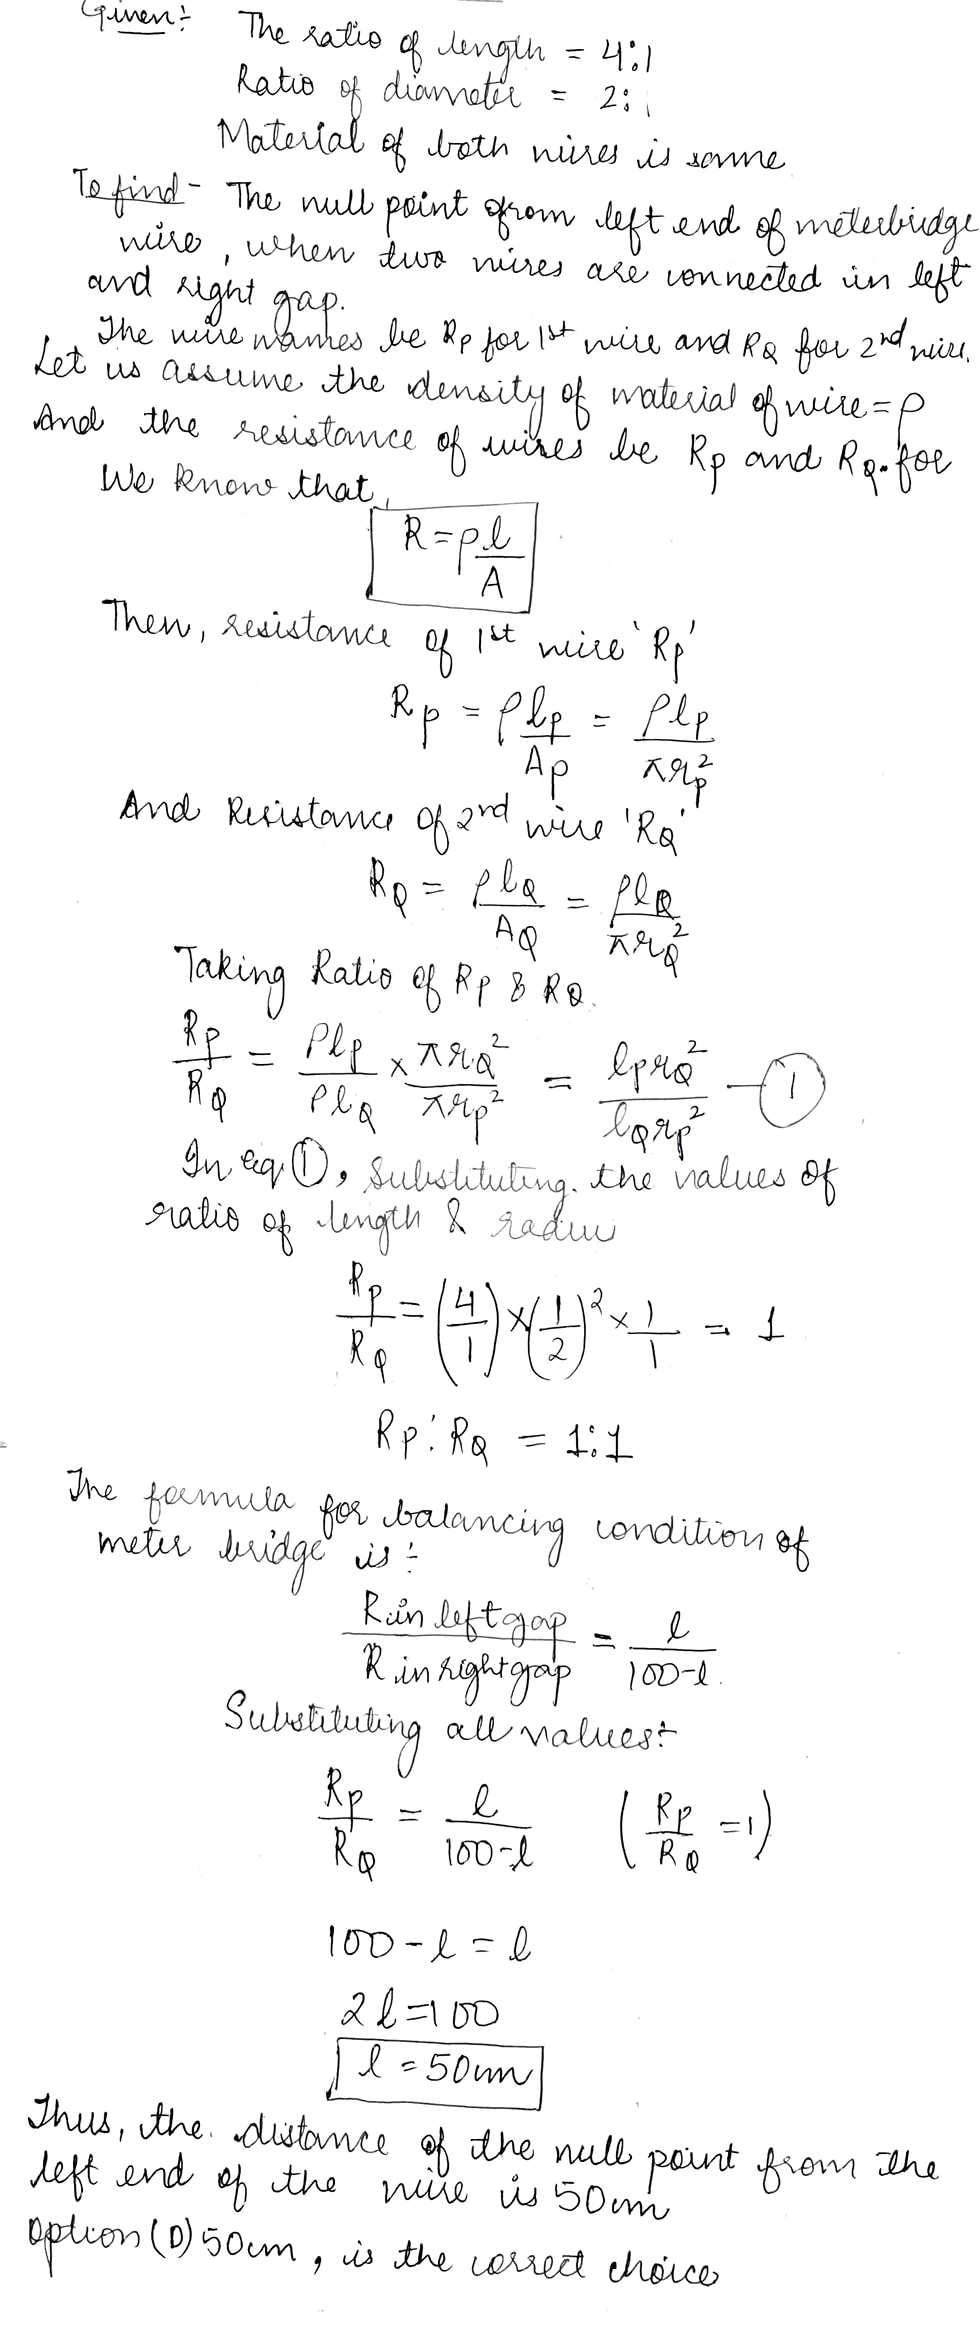 Given:-
The ratio of length = 4:1
Ratio of diameter = 2:1
Material of both wires is same
To find - The null point from left end of meterbridge
wire, when two wires are connected in left
and right gap.
The wire names be Rp for 1st wire and RQ for 2nd wire.
Let us assume the density of material of wire = ρ
And the resistance of wires be Rp and RQ. for
We know that,
R = ρl/A
Then, resistance of 1st wire 'Rp'
Rp = ρlp/Ap = ρlp/πrp²
And Resistance of 2nd wire 'RQ'
RQ = ρlQ/AQ = ρlQ/πrQ²
Taking Ratio of Rp & RQ.
Rp/RQ = ρlp/ρlQ × πrQ²/πrp² = lprQ²/lQrp² — 1
In eq 1, substituting. the values of
ratio of length & radius
Rp/RQ = (4/1) × (1/2)² × 1/1 = 1
Rp : RQ = 1:1
The formula for balancing condition of
meter bridge is :-
R in left gap/R in right gap = l/100-l.
Substituting all values:-
Rp/RQ = l/100-l (Rp/RQ = 1)
100 - l = l
2l = 100
l = 50cm
Thus, the. distance of the null point from the
left end of the wire is 50cm
Option (D) 50cm, is the correct choice